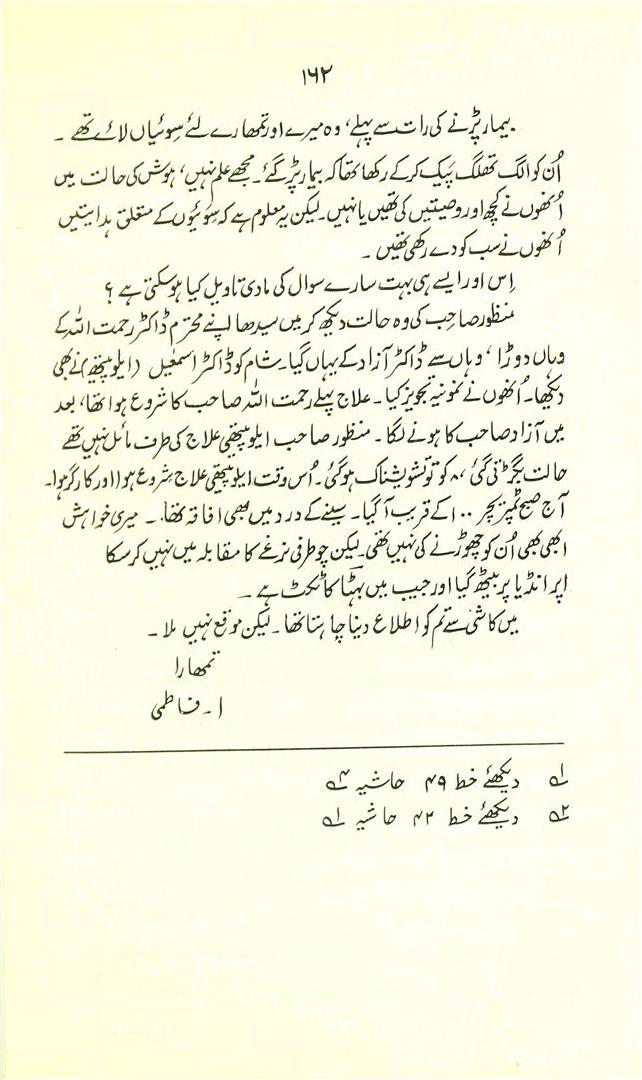 ۱۶۲
بیمار پڑنے کی رات سے پہلے، وہ میرے اور تمھارے لئے سوئیاں لائے تھے ۔
اُن کو الگ تھلگ پیک کر کے رکھا تھا کہ بیمار پڑ گئے۔ مجھے علم نہیں، ہوش کی حالت میں
اُنھوں نے کچھ اور وصیتیں کی تھیں یا نہیں ۔ لیکن یہ معلوم ہے کہ سوئیوں کے متعلق ہدایتیں
اُنھوں نے سب کو دے رکھی تھیں ۔
اِس اور ایسے ہی بہت سارے سوال کی مادی تاویل کیا ہوسکتی ہے ؟
منظور صاحب کی وہ حالت دیکھ کر میں سیدھا اپنے محترم ڈاکٹر رحمت اللہ کے
وہاں دوڑا ، وہاں سے ڈاکٹر آزاد کے یہاں گیا۔ شام کو ڈاکٹر اسمعیل (ایلوپیتھ) نے بھی
دیکھا۔ اُنھوں نے نمونیہ تجویز کیا ۔ علاج پہلے رحمت اللہ صاحب کا شروع ہوا تھا، بعد
میں آزاد صاحب کا ہونے لگا ۔ منظور صاحب ایلوپیتھی علاج کی طرف مائل نہیں تھے
حالت بگڑتی گئی ، ۸ کو تو تشویشناک ہوگئی۔ اُس وقت ایلوپیتھی علاج شروع ہوا اور کارگر ہوا۔
آج صبح ٹمپریچر ۱۰۰ کے قریب آگیا ۔ سینے کے درد میں بھی افاقہ تھا ۔ میری خواہش
ابھی بھی اُن کو چھوڑنے کی نہیں تھی۔ لیکن چوطرفی نرغے کا مقابلہ میں نہیں کرسکا
اپر انڈیا پر بیٹھ گیا اور جیب میں بھٹا کا ٹکٹ ہے ۔
میں کاشی سے تم کو اطلاع دینا چاہتا تھا ۔ لیکن موقع نہیں ملا ۔
تمھارا
ا ۔ فاطمی
؂۱ دیکھئے خط ۴۹ حاشیہ ؂۴
؂۲ دیکھئے خط ۴۳ حاشیہ ؂۱